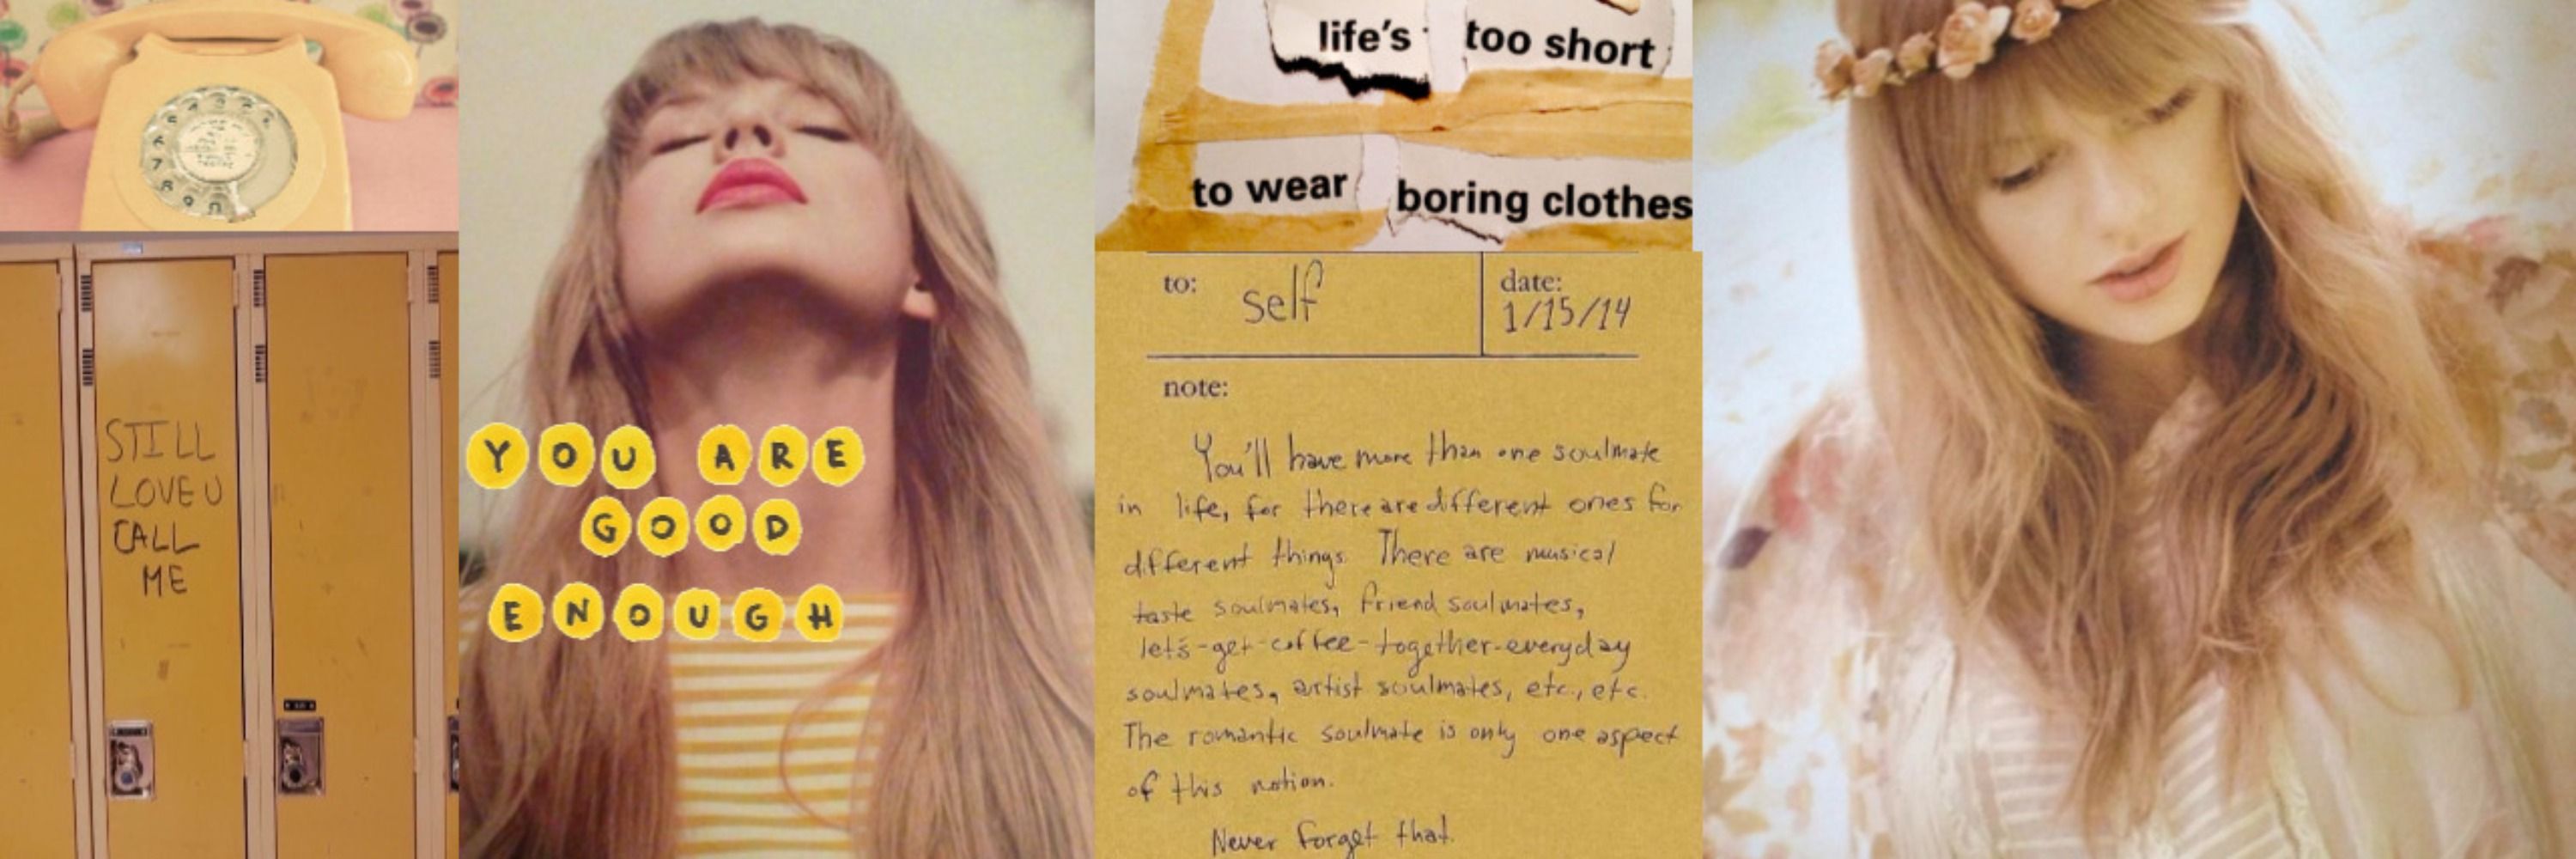 STILL
LOVE U
CALL
ME
YOU ARE
GOOD
ENOUGH
life's too short
to wear boring clothes
to: self
date: 1/15/14
note:
You'll have more than one soulmate
in life, for there are different ones for
different things. There are musical
taste soulmates, friend soulmates,
let's-get-coffee-together-everyday
soulmates, artist soulmates, etc., etc.
The romantic soulmate is only one aspect
of this notion.
Never forget that.